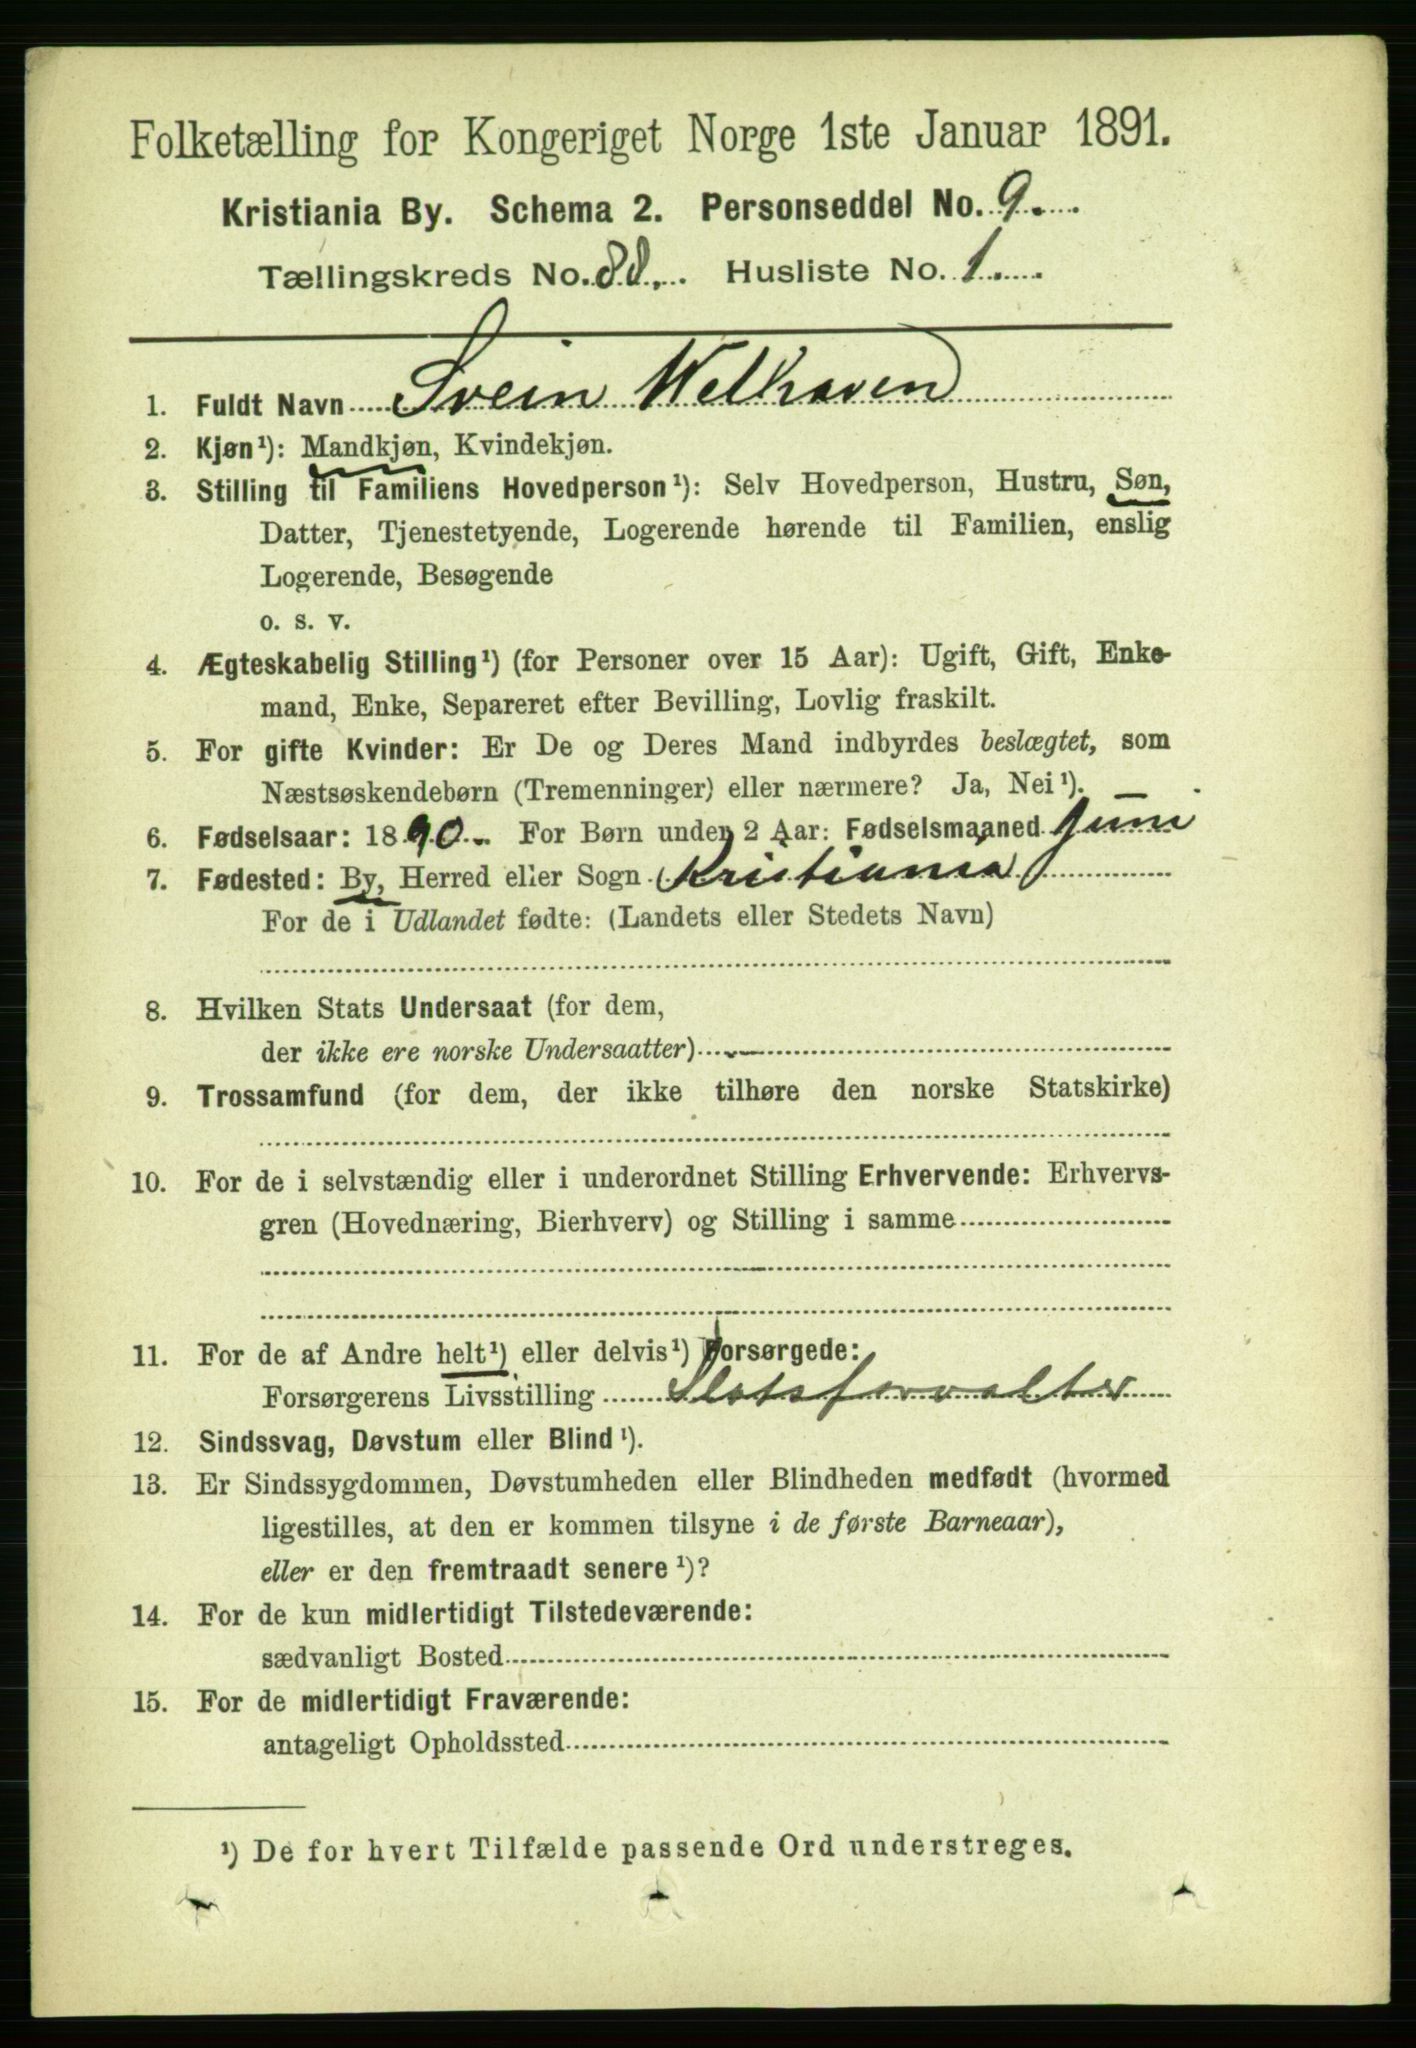 Folketælling for Kongeriget Norge 1ste Januar 1891.
Kristiania By. Schema 2. Personseddel No. 9.
Tællingskreds No. 88. Husliste No. 1.
1. Fuldt Navn Svein Welhaven
2. Kjøn¹): Mandkjøn, Kvindekjøn.
3. Stilling til Familiens Hovedperson¹): Selv Hovedperson, Hustru, Søn,
Datter, Tjenestetyende, Logerende hørende til Familien, enslig
Logerende, Besøgende
o. s. v.
4. Ægteskabelig Stilling¹) (for Personer over 15 Aar): Ugift, Gift, Enke-
mand, Enke, Separeret efter Bevilling, Lovlig fraskilt.
5. For gifte Kvinder: Er De og Deres Mand indbyrdes beslægtet, som
Næstsøskendebørn (Tremenninger) eller nærmere? Ja, Nei¹).
6. Fødselsaar: 1890. For Børn under 2 Aar: Fødselsmaaned Juni
7. Fødested: By, Herred eller Sogn Kristiania
For de i Udlandet fødte: (Landets eller Stedets Navn)
8. Hvilken Stats Undersaat (for dem,
der ikke ere norske Undersaatter)
9. Trossamfund (for dem, der ikke tilhøre den norske Statskirke)
10. For de i selvstændig eller i underordnet Stilling Erhvervende: Erhvervs-
gren (Hovednæring, Bierhverv) og Stilling i samme
11. For de af Andre helt¹) eller delvis¹) Forsørgede:
Forsørgerens Livsstilling Slotsforvalter
12. Sindssvag, Døvstum eller Blind¹).
13. Er Sindssygdommen, Døvstumheden eller Blindheden medfødt (hvormed
ligestilles, at den er kommen tilsyne i de første Barneaar),
eller er den fremtraadt senere¹)?
14. For de kun midlertidigt Tilstedeværende:
sædvanligt Bosted
15. For de midlertidigt Fraværende:
antageligt Opholdssted
¹) De for hvert Tilfælde passende Ord understreges.